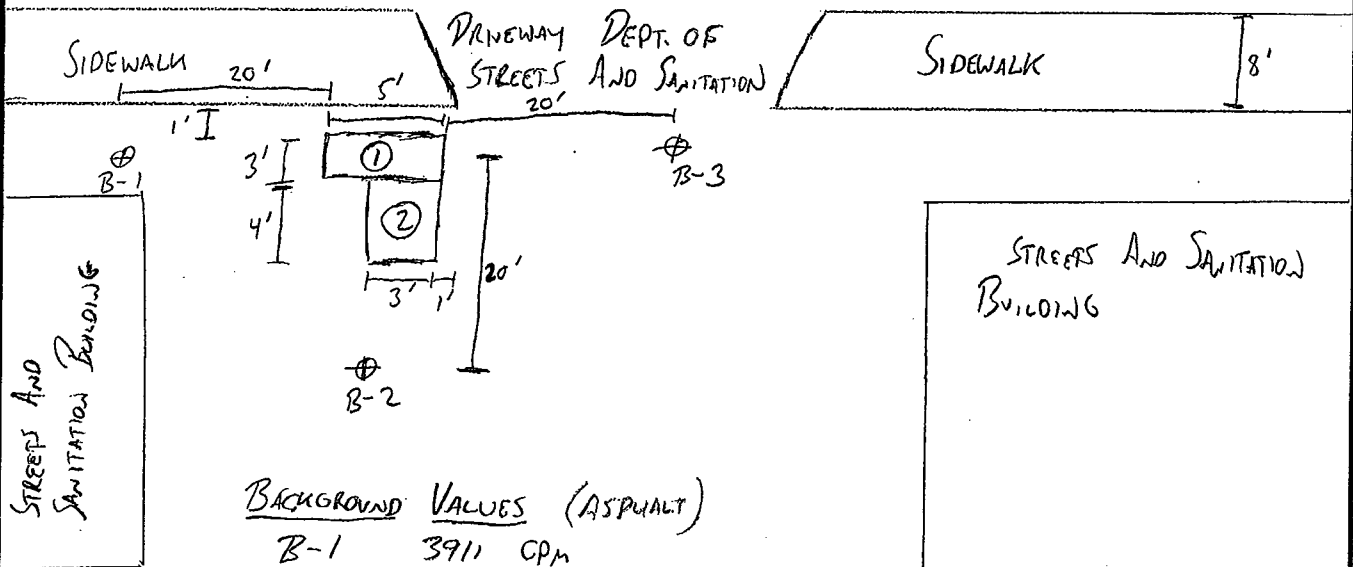 SIDEWALK
DRIVEWAY DEPT. OF
STREETS AND SANITATION
SIDEWALK
8'
20'
5'
20'
1'
3'
①
B-1
B-3
4'
②
3'
1'
20'
B-2
STREETS AND
SANITATION BUILDING
STREETS AND SANITATION
BUILDING
BACKGROUND VALUES (ASPHALT)
B-1 3911 CPM